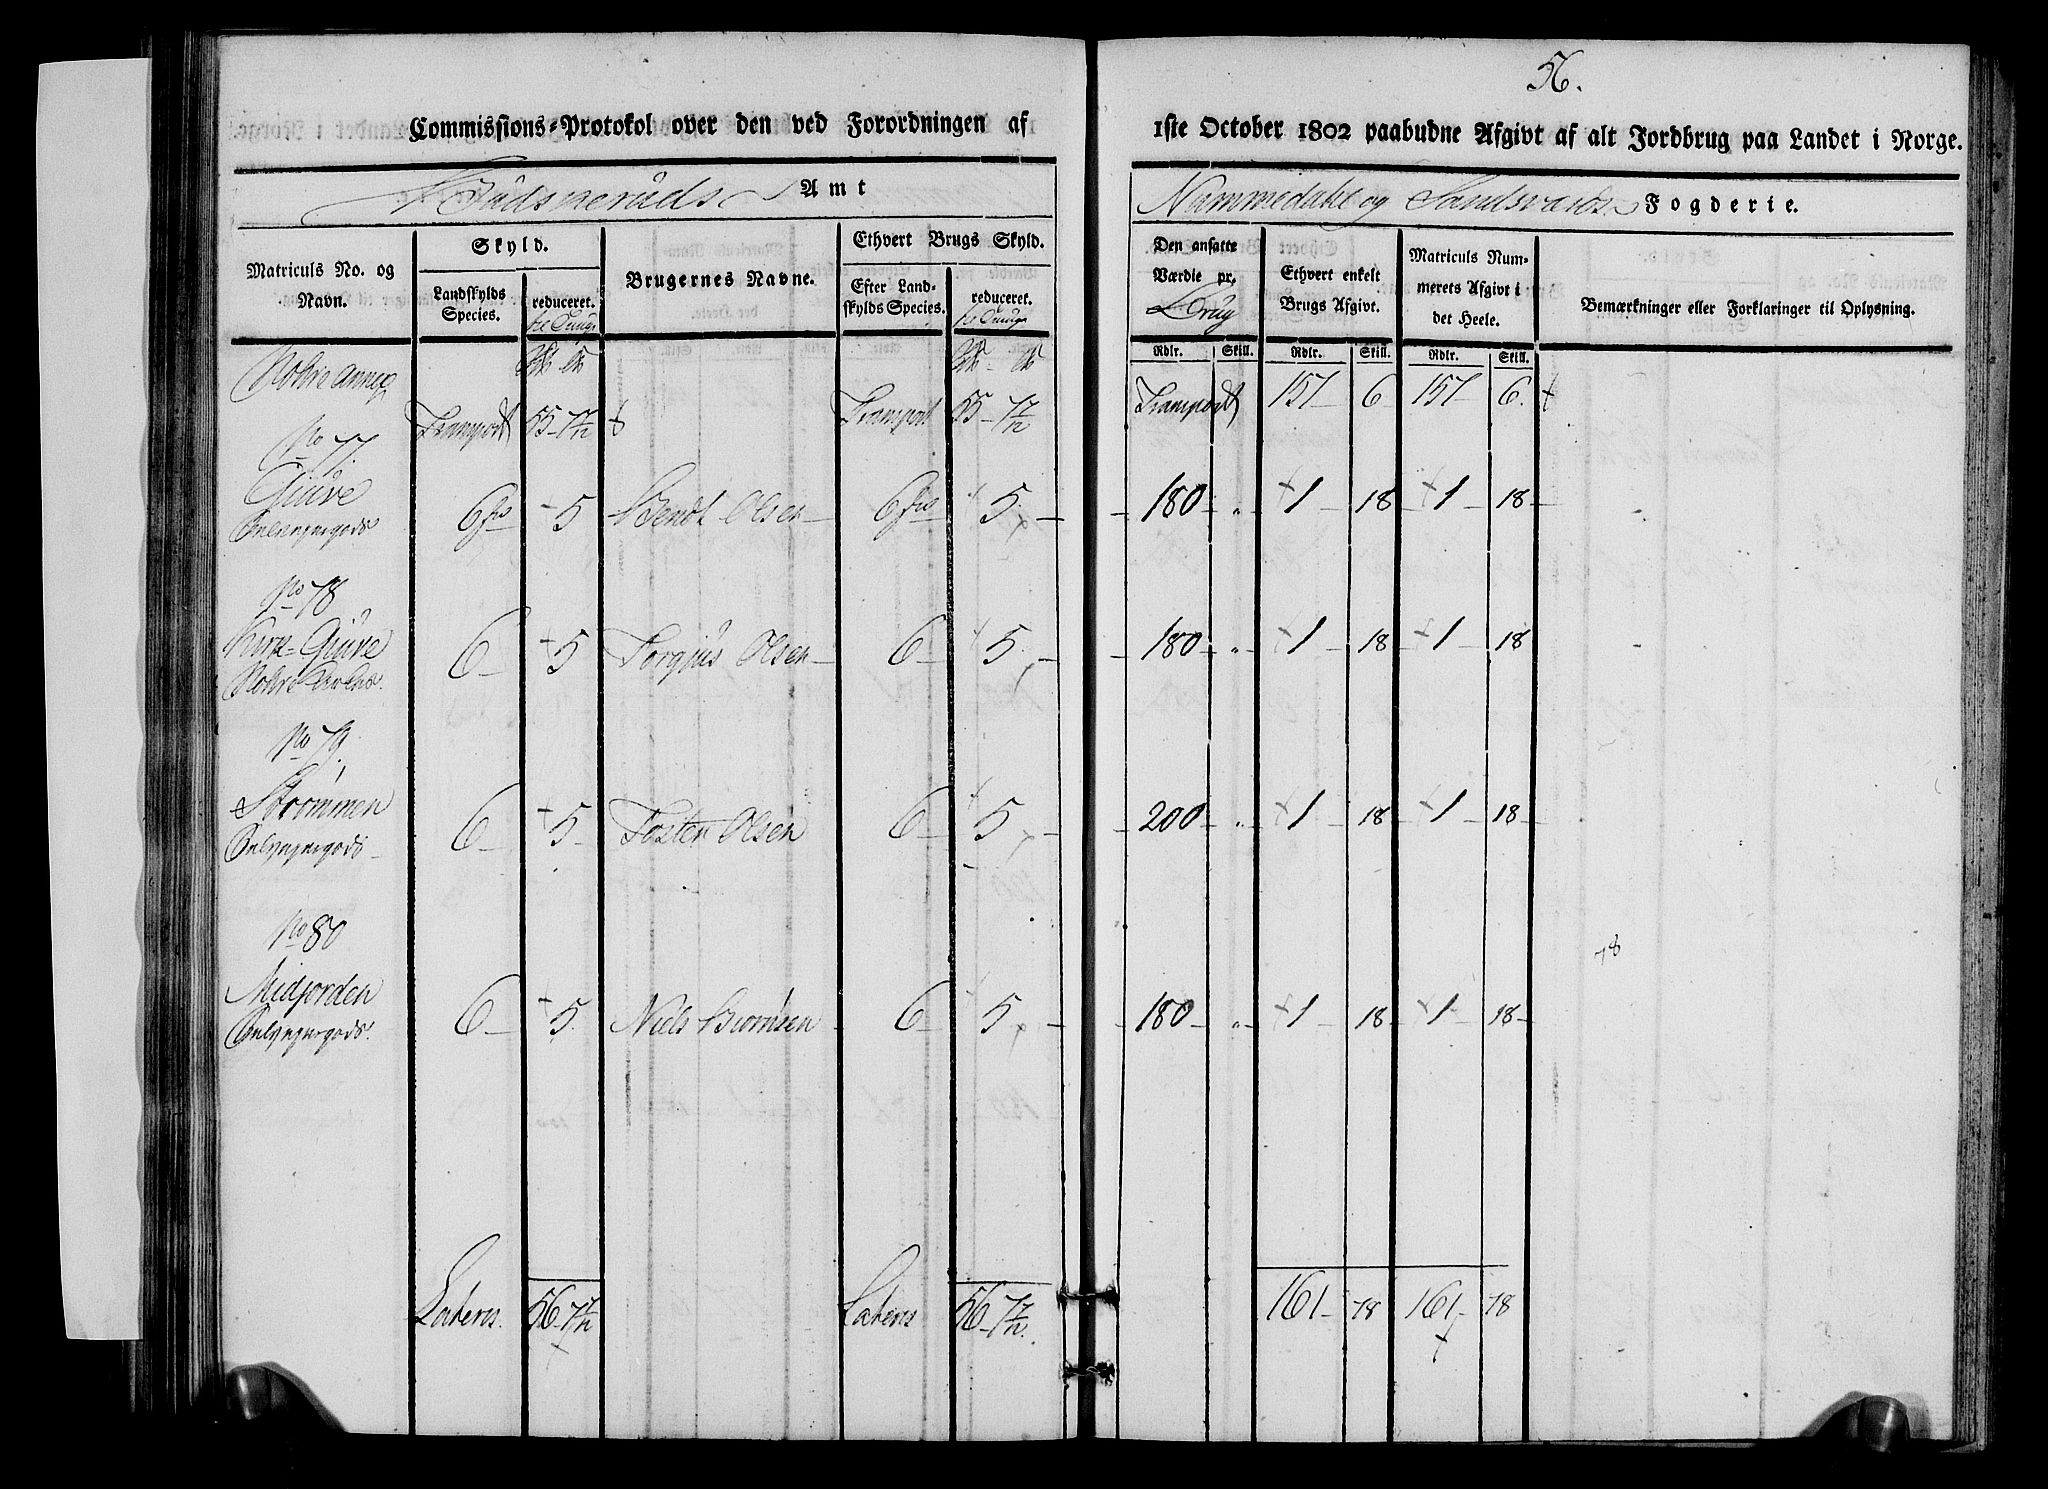 56.
Commissions-Protokol over den ved Forordningen af
1ste October 1802 paabudne Afgivt af alt Jordbrug paa Landet i Norge.
Budsneruds Amt
Nummedahl og Sandsværds Fogderie.
Matriculs No. og Navn.
Skyld.
Landskylds Species.
reduceret.
Brugernes Navne.
Ethvert Brugs Skyld.
Efter Landskylds Species.
reduceret.
Den ansatte Værdie pr. Brug
Ethvert enkelt Brugs Afgivt.
Matriculs Nummerets Afgivt i det Heele.
Bemærkninger eller Forklaringer til Oplysning.
Rdlr. Skill. Rdlr. Skill. Rdlr. Skill.
Nohre Annex
Transport 55-7/12 Transport 55-7/12 Transport 157 6 157 6.
No 77.
Giuve
6 5 Bendt Olsen 6 5 180 " 1 18 1 18
No 78
Giuve
Nohre
6 5 Torgius Olsen 6 5 180 " 1 18 1 18
No 79.
Strømmen
6 5 Tosten Olsen 6 5 200 " 1 18 1 18
No 80
Midjorden
6 5 Niels Biørnsen 6 5 180 " 1 18 1 18
78
Lateris 56-7/12 Lateris 56-7/12. 161 78 161 78